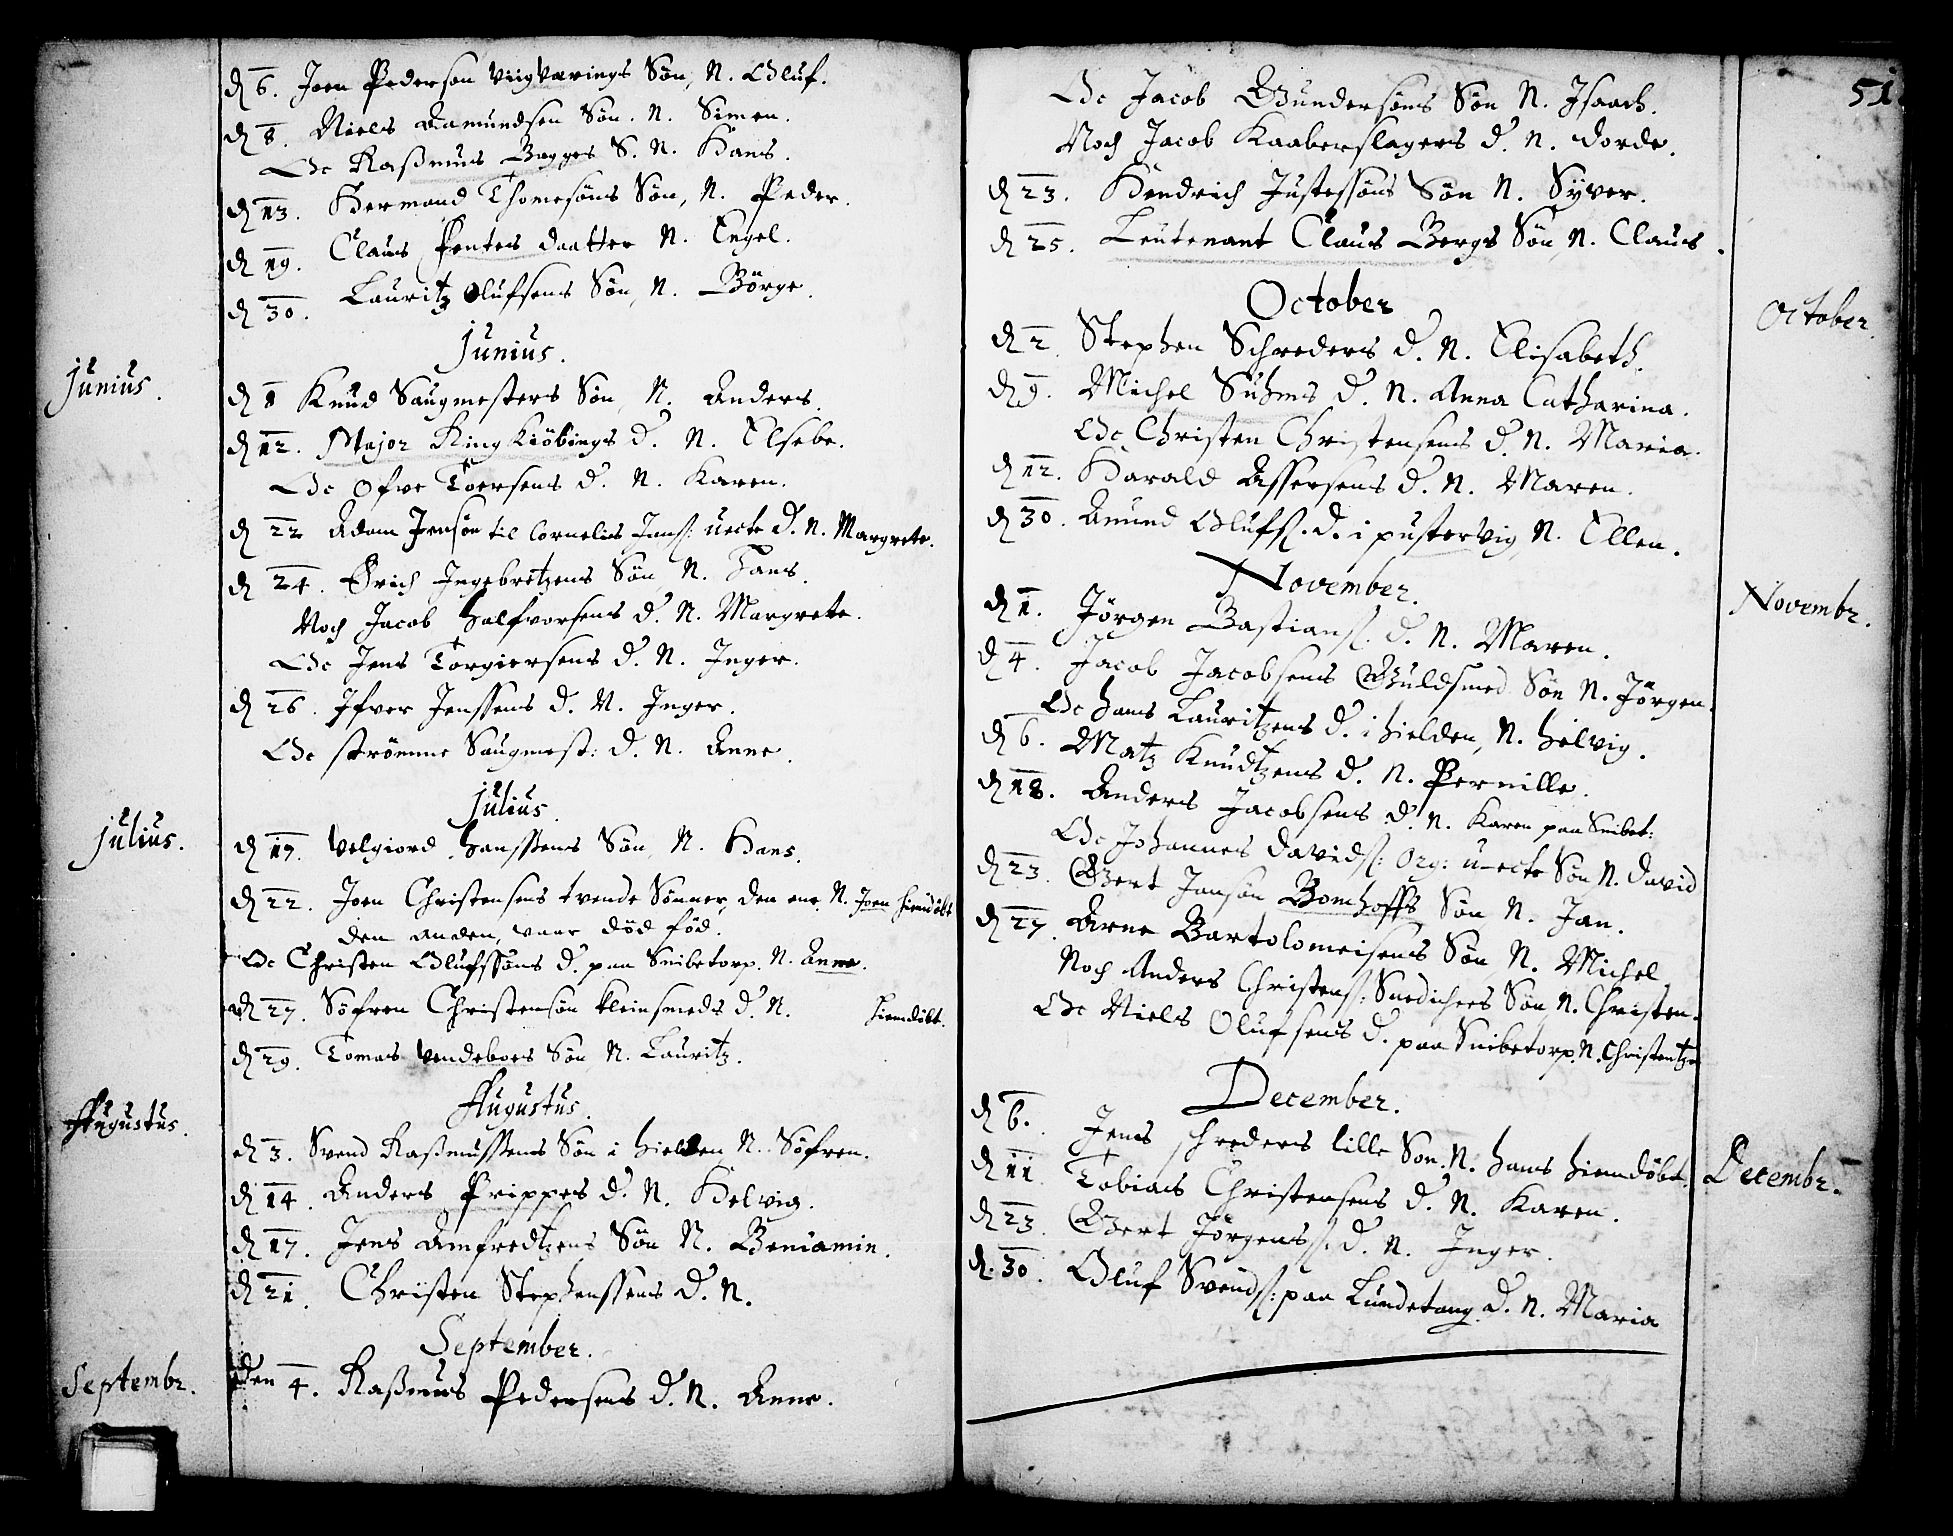 d 6. Joen Pederson Viigværings Søn, N. Oluf.
d 8. Niels Aamundsen Søn. N. Simen.
Oc Raßmus Bagges S. N. Hans.
d 13. Hermand Thomesøns Søn, N. Peder.
d 19. Claus Pentes daatter N. Engel.
d 30. Lauritz Olufsens Søn, N. Börge.
Junius.
Junius.
d 8 Knud Saugmesters Søn, N. Anders.
d 12. Major Ring Kiöbings d. N. Elsebe.
Oc Ofve Toersens d. N. Karen.
d 22 Adam Jensøn til Cornelius Jans: uecte d. N. Margrete.
d 24. Erich Ingebretzens Søn N. Hans.
Noch Jacob Halfvorsens d. N. Margrete.
Oc Jens Torgiersens d. N. Inger.
d 26. Ifver Jenssens d. N. Inger.
Oc strömne Saugmest: d. N. Anne.
Julius.
Julius.
d 19. Velgiord Hanssens Søn, N. Hans.
d 22. Joen Christensens tvende Sønner, den ene N. Joen hiemdöbt
den anden, vaar död född.
Oc Christen Olufssøns d. paa Snibetorp. N. Anne.
d 27. Söfren Christensøn kleinsmeds d. N. hiemdöbt.
d 29. Tomas Vendeboes Søn N. Lauritz.
Augustus.
Augustus.
d 3. Svend Raßmussens Søn i hielden N. Söfren.
d 14. Anders Prippes d. N. Helvig.
d 17. Jens Amfredtzens Søn N. Beniamin.
d 21. Christen Stephenssens d. N.
September.
Septembr.
den 4. Raßmus Pedersens d. N. Anne.
51.
Oc Jacob Gundersøns Søn N. Isaach.
Noch Jacob Kaaberslagers d. N. Dorde.
d 23. Hendrich Justessøns Søn N. Syver.
d 25. Leutenant Claus Bergs Søn, N. Claus.
October
October
d 2. Stephen Schreders d. N. Elisabeth.
d 9. Michel Suhms d. N. Anna Catharina.
Oc Christen Christensens d. N. Maria.
d 12. Harald Assersens d. N. Maren.
d 30. Amund Olufs. d. i pustervig, N. Ellen.
November.
Novembr.
d 1. Jörgen Bastians. d. N. Maren.
d 4. Jacob Jacobsens Guldsmed Søn N. Jörgen.
Oc Hans Lauritzens d. i hielden, N. Helvig.
d 6. Matz Knudtzens d. N. Pernille.
d 18. Anders Jacobsens d. N. Karen paa Snibet:
Oc Johannes Davids: Org: u-ecte Søn N. David
d 23. Geert Jansøn Bomhoffs Søn N. Jan.
d 27. Arne Bartolomeisens Søn, N. Michel.
Noch Anders Christens: Snedichers Søn N. Christen.
Oc Niels Olufsens d. paa Snibetorp. N. Christentze
December.
Decembr.
d 6. Jens schreders lille Søn. N. Hans hiemdöbt.
d 11. Tobias Christensens d. N. Karen.
d 23. Geert Jörgens. d. N. Inger.
d. 30. Oluf Svends: paa Lundetang d. N. Maria